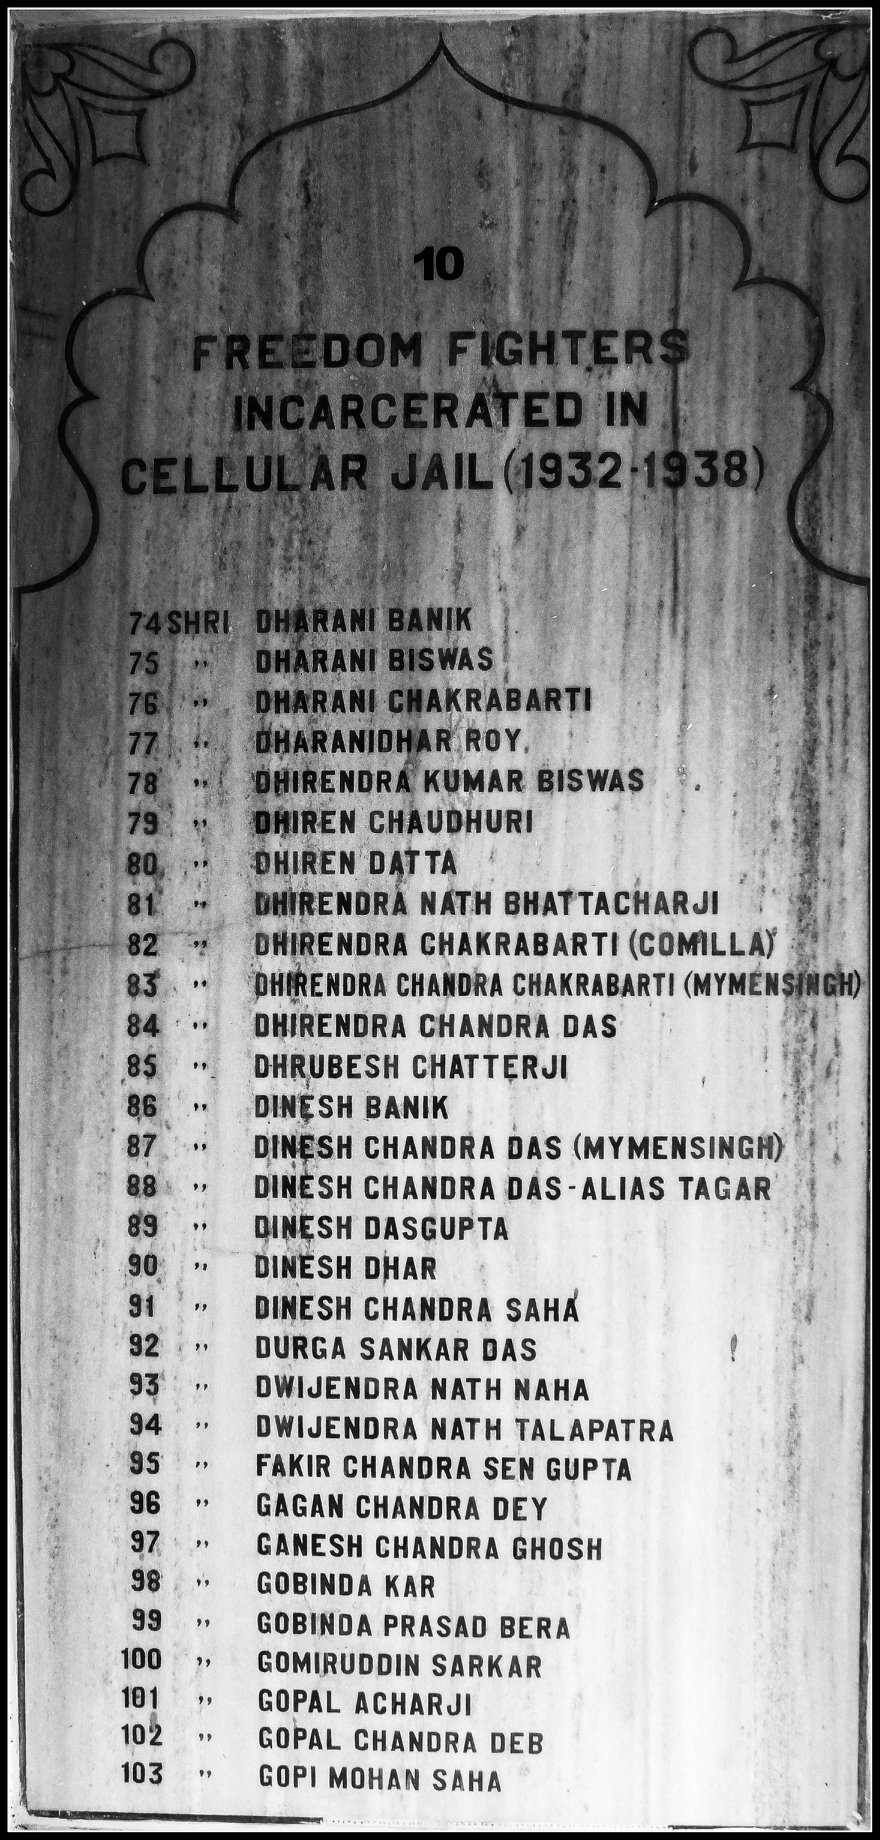 10
FREEDOM FIGHTERS
INCARCERATED IN
CELLULAR JAIL (1932-1938)
74 SHRI DHARANI BANIK
75 " DHARANI BISWAS
76 " DHARANI CHAKRABARTI
77 " DHARANIDHAR ROY
78 " DHIRENDRA KUMAR BISWAS
79 " DHIREN CHAUDHURI
80 " DHIREN DATTA
81 " DHIRENDRA NATH BHATTACHARJI
82 " DHIRENDRA CHAKRABARTI (COMILLA)
83 " DHIRENDRA CHANDRA CHAKRABARTI (MYMENSINGH)
84 " DHIRENDRA CHANDRA DAS
85 " DHRUBESH CHATTERJI
86 " DINESH BANIK
87 " DINESH CHANDRA DAS (MYMENSINGH)
88 " DINESH CHANDRA DAS-ALIAS TAGAR
89 " DINESH DASGUPTA
90 " DINESH DHAR
91 " DINESH CHANDRA SAHA
92 " DURGA SANKAR DAS
93 " DWIJENDRA NATH NAHA
94 " DWIJENDRA NATH TALAPATRA
95 " FAKIR CHANDRA SEN GUPTA
96 " GAGAN CHANDRA DEY
97 " GANESH CHANDRA GHOSH
98 " GOBINDA KAR
99 " GOBINDA PRASAD BERA
100 " GOMIRUDDIN SARKAR
101 " GOPAL ACHARJI
102 " GOPAL CHANDRA DEB
103 " GOPI MOHAN SAHA